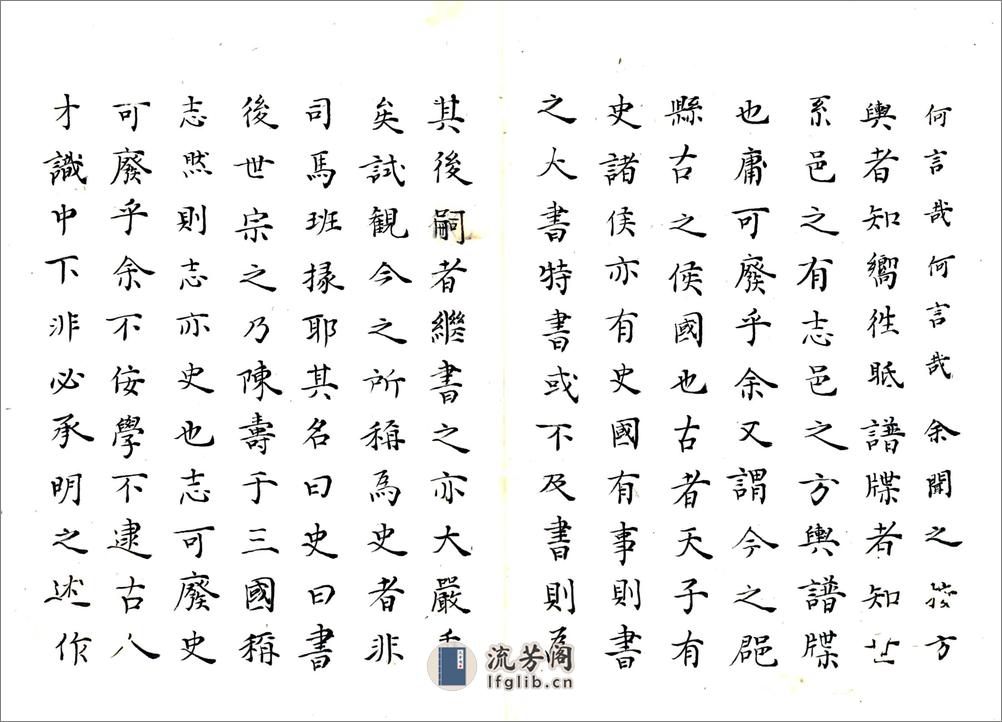 何言哉何言哉余聞之方
輿者知嚮徃眂譜牒者知
系邑之有志邑之方輿譜牒
也庸可廢乎余又謂今之郡
縣古之侯國也古者天子有
史諸侯亦有史國有事則書
之大書特書或不及書則為
其後嗣者繼書之亦大嚴
矣試觀今之所稱為史者非
司馬班掾耶其名曰史曰書
後世宗之乃陳壽于三國稱
志然則志亦史也志可廢史
可廢乎余不佞學不逮古人
才識中下非必承明之述作
流芳阁
lfglib.cn